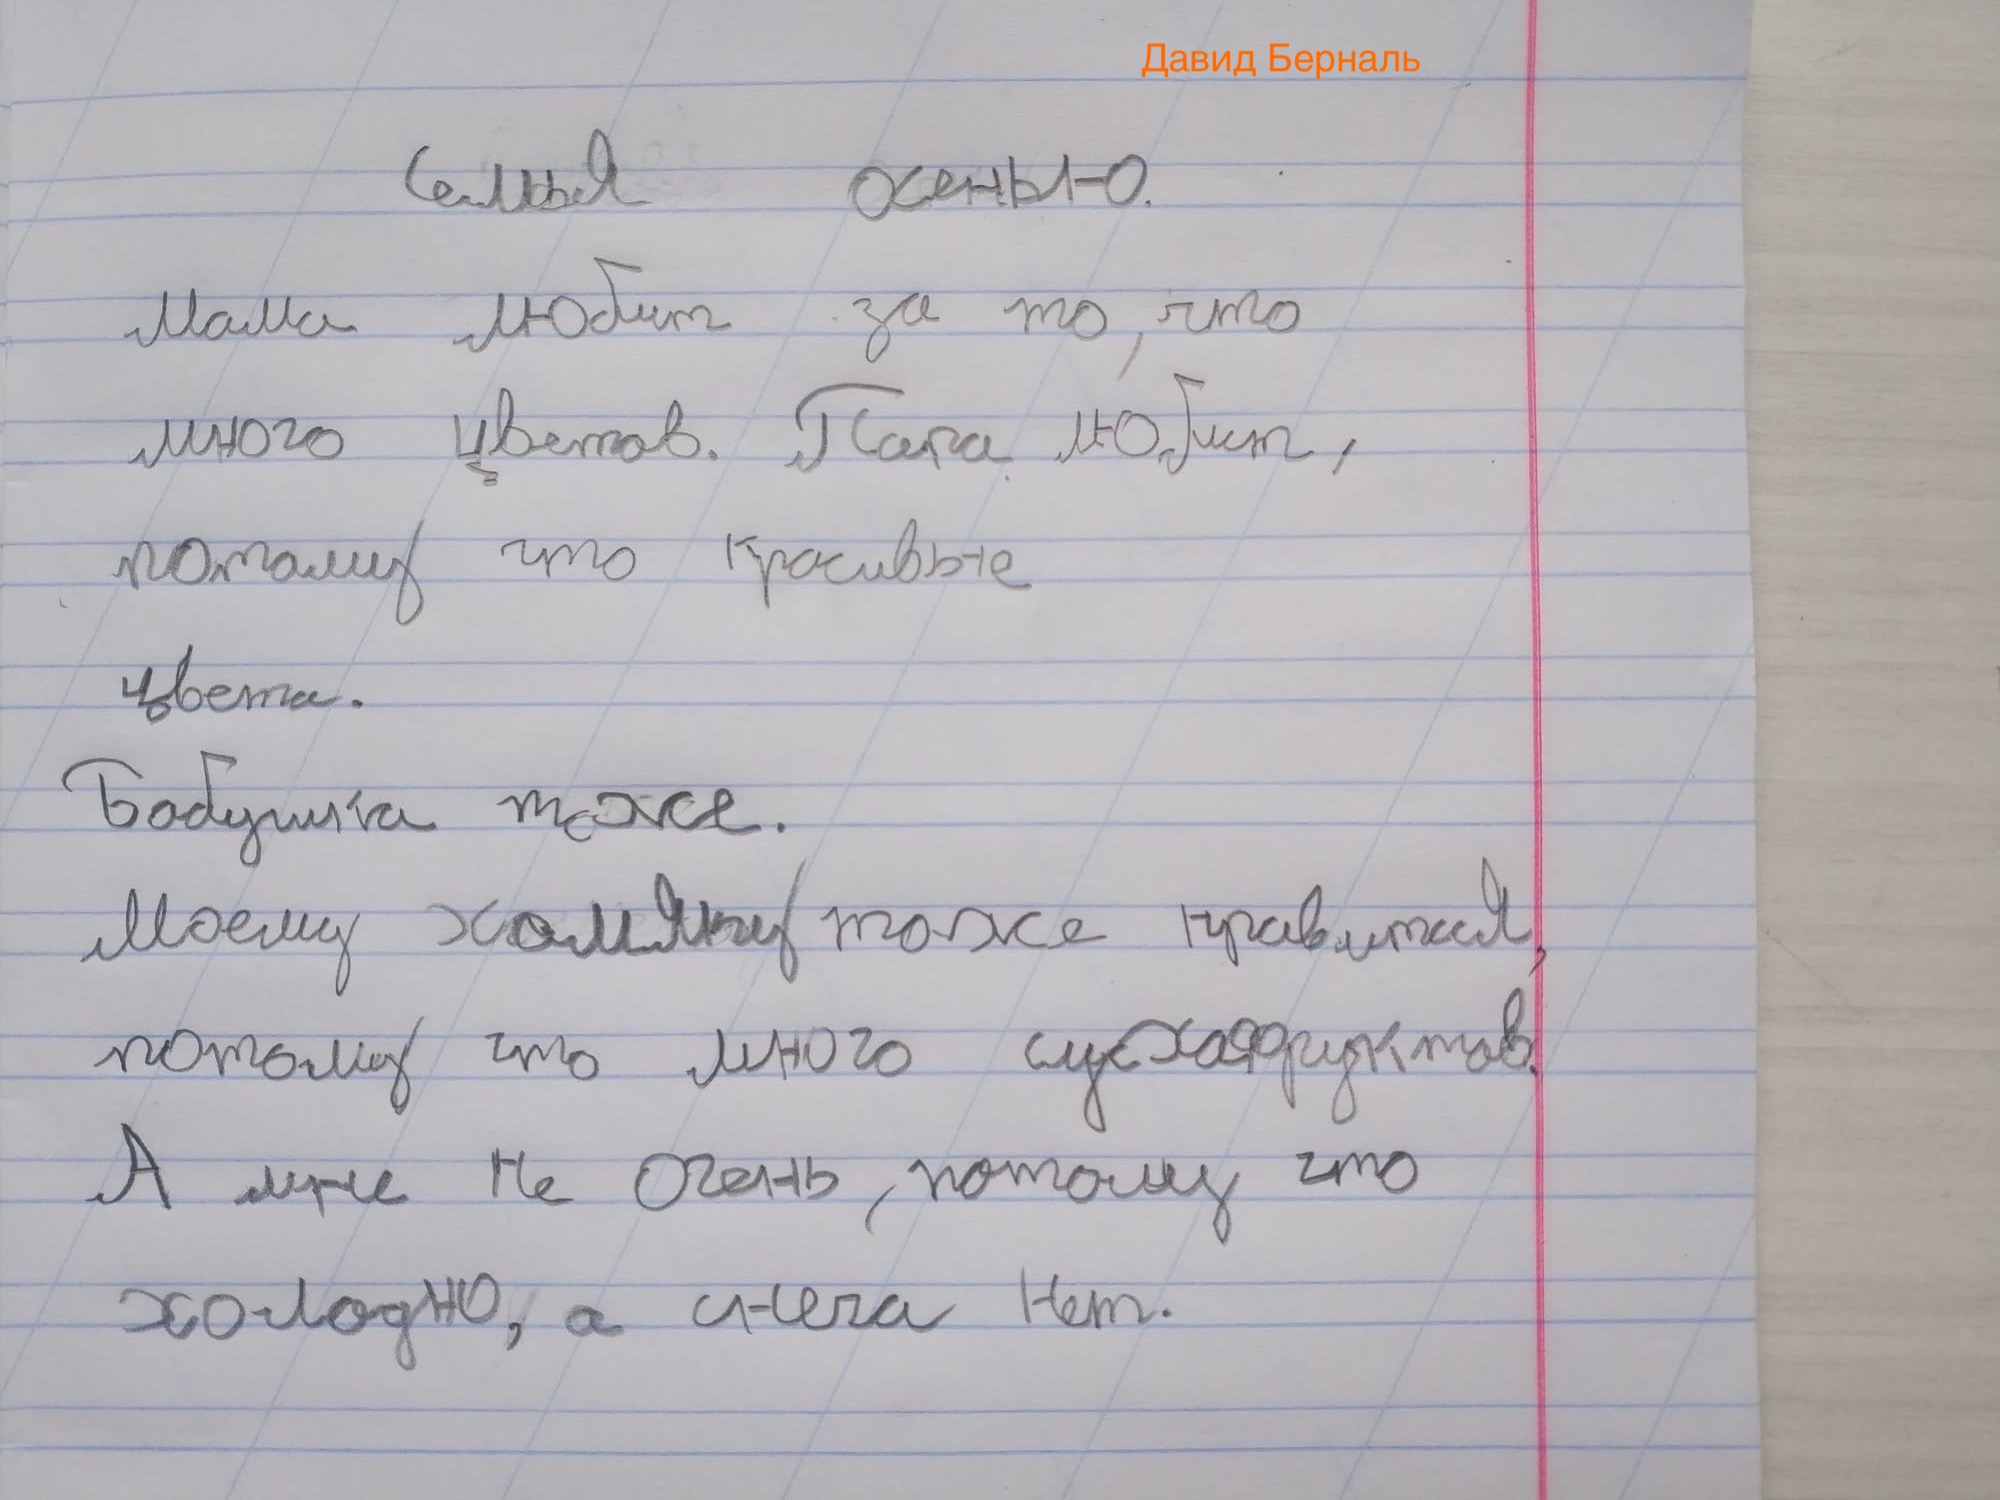 Давид Берналь
Семья осенью.
Мама любит за то, что
много цветов. Папа любит,
потому что красивые
цвета.
Бабушка тоже.
Моему хомяку тоже нравится,
потому что много сухафруктов.
А мне не очень, потому что
холодно, а снега нет.